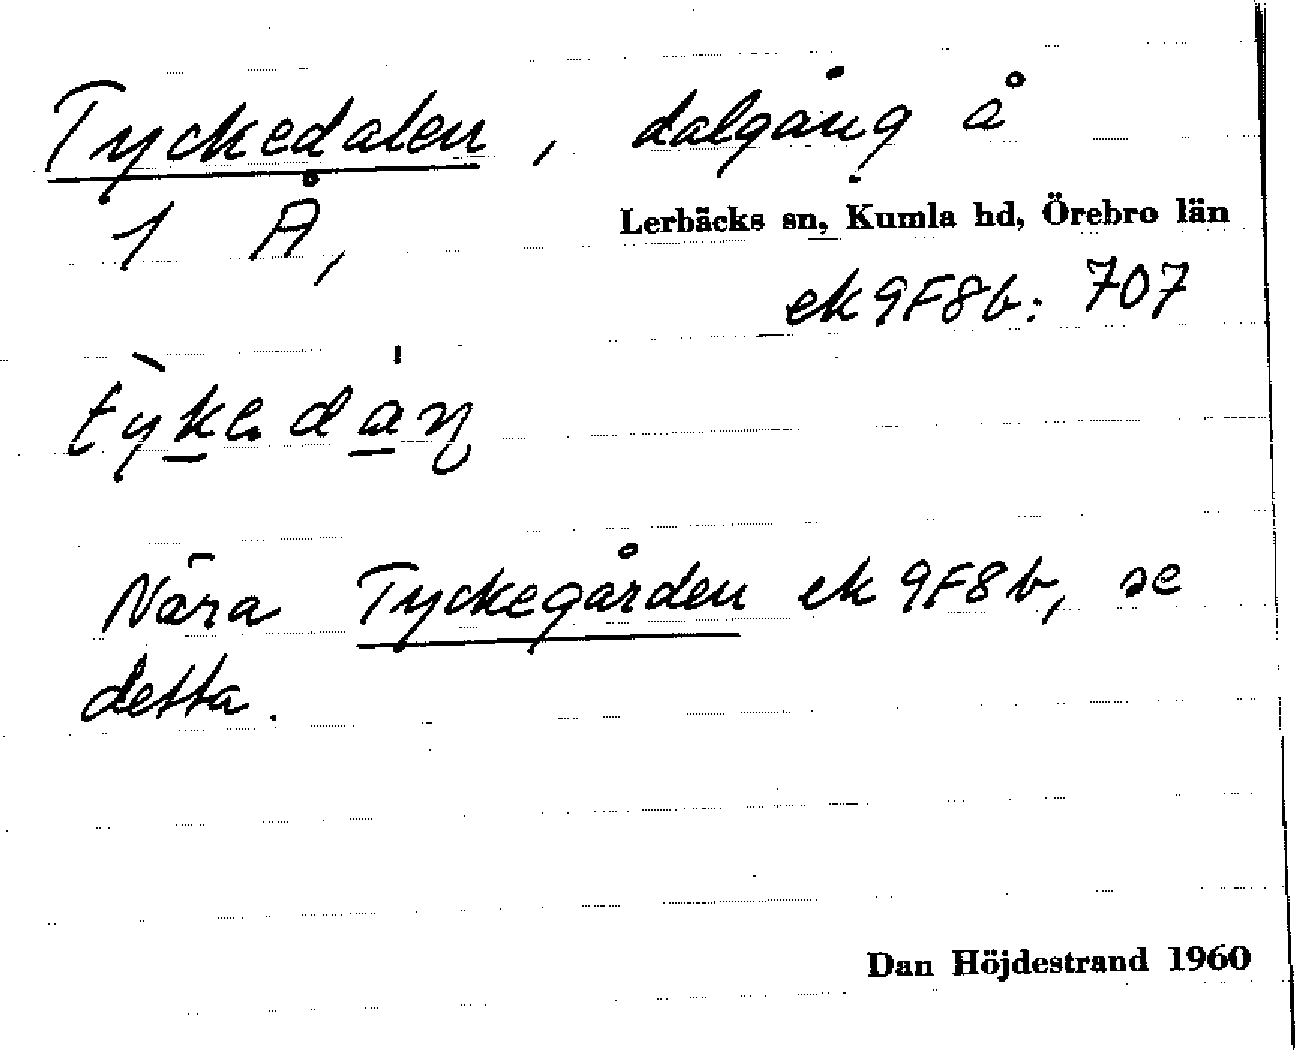 Tyckedalen, dalgång å
1 Å, Lerbäcks sn, Kumla hd, Örebro län
ek 9F8b: 707
tỳkedáɳ
Nära Tyckegården ek 9F8b, se
detta.
Dan Höjdestrand 1960